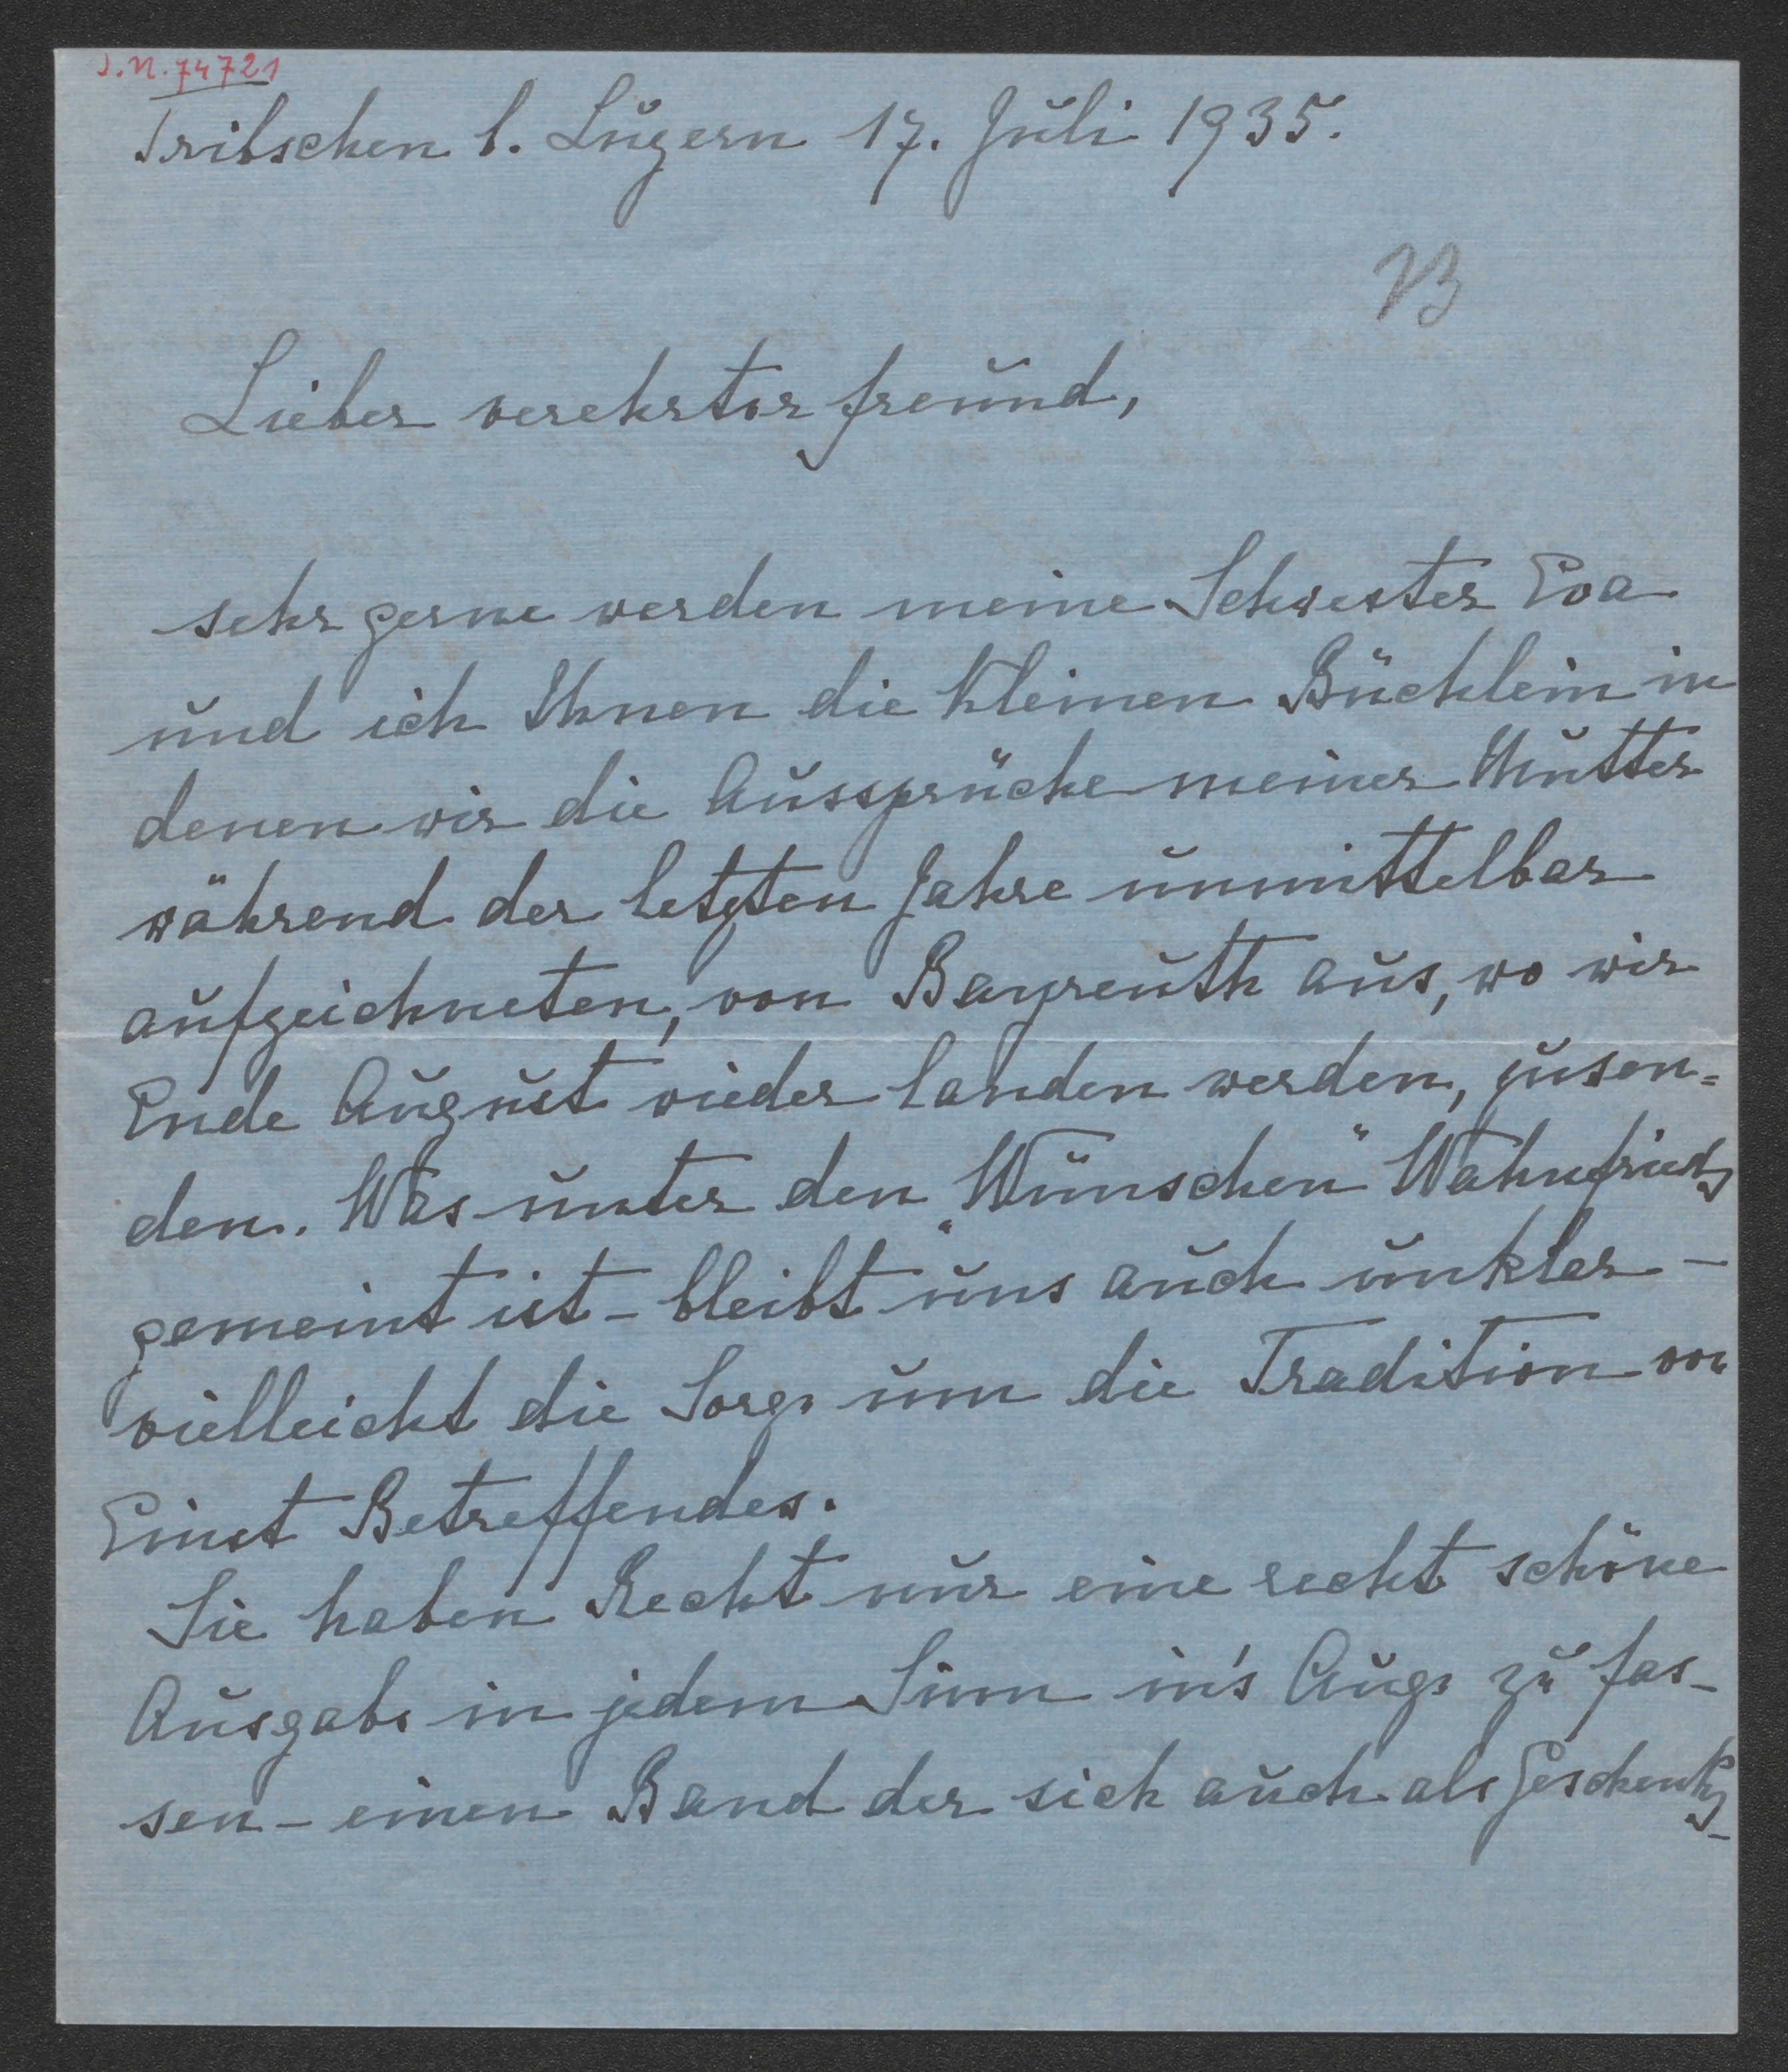 I.N. 74721
Tribschen b. Luzern 17. Juli 1935.
Lieber verehrter Freund,
sehr gerne werden meine Schwester Eva
und ich Ihnen die kleinen Büchlein in
denen wir die Aussprüche meiner Mutter
während der letzten Jahre unmittelbar
aufzeichneten, von Bayreuth aus, wo wir
Ende August wieder landen werden, zusen=
den. Was unter den „Wünschen“ Wahnfrieds
gemeint ist – bleibt uns auch unklar –
vielleicht die Sorge um die Tradition von
Einst Betreffendes.
Sie haben Recht nur eine recht schöne
Ausgabe in jedem Sinn in's Auge zu fas-
sen – einen Band der sich auch als Geschenks-